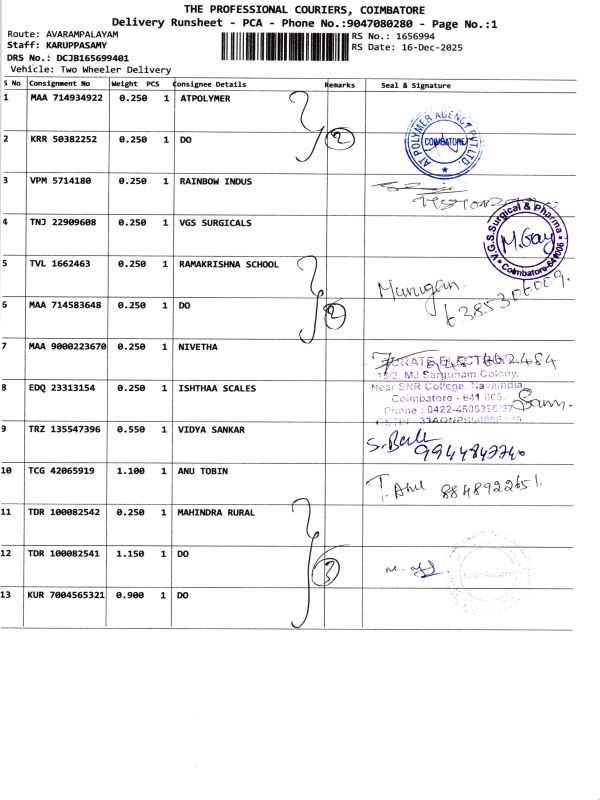 THE PROFESSIONAL COURIERS, COIMBATORE
Delivery Runsheet - PCA - Phone No.:9047080280 - Page No.:1
Route: AVARAMPALAYAM
Staff: KARUPPASAMY
DRS No.: DCJB165699401
Vehicle: Two Wheeler Delivery
RS No.: 1656994
RS Date: 16-Dec-2025
S No Consignment No Weight PCS Consignee Details Remarks Seal & Signature
1 MAA 714934922 0.250 1 ATPOLYMER
2 KRR 50382252 0.250 1 DO 2
AT POLYMER AGENCY PVT LTD
COIMBATORE
3 VPM 5714180 0.250 1 RAINBOW INDUS
4 TNJ 22909608 0.250 1 VGS SURGICALS
V.G.S. Surgical & Pharma
M. Gay
Coimbatore-641006
5 TVL 1662463 0.250 1 RAMAKRISHNA SCHOOL
Murugan
6385306009.
6 MAA 714583648 0.250 1 DO 2
7 MAA 9000223670 0.250 1 NIVETHA
8 EDQ 23313154 0.250 1 ISHTHAA SCALES
MJ Sargunam Colony,
Near SNR College, Navaindia
Coimbatore - 641 006.
Phone : 0422-
9 TRZ 135547396 0.550 1 VIDYA SANKAR
10 TCG 42065919 1.100 1 ANU TOBIN
T. Anu 8848922651.
11 TDR 100082542 0.250 1 MAHINDRA RURAL
12 TDR 100082541 1.150 1 DO 3
Coimbatore
13 KUR 7004565321 0.900 1 DO